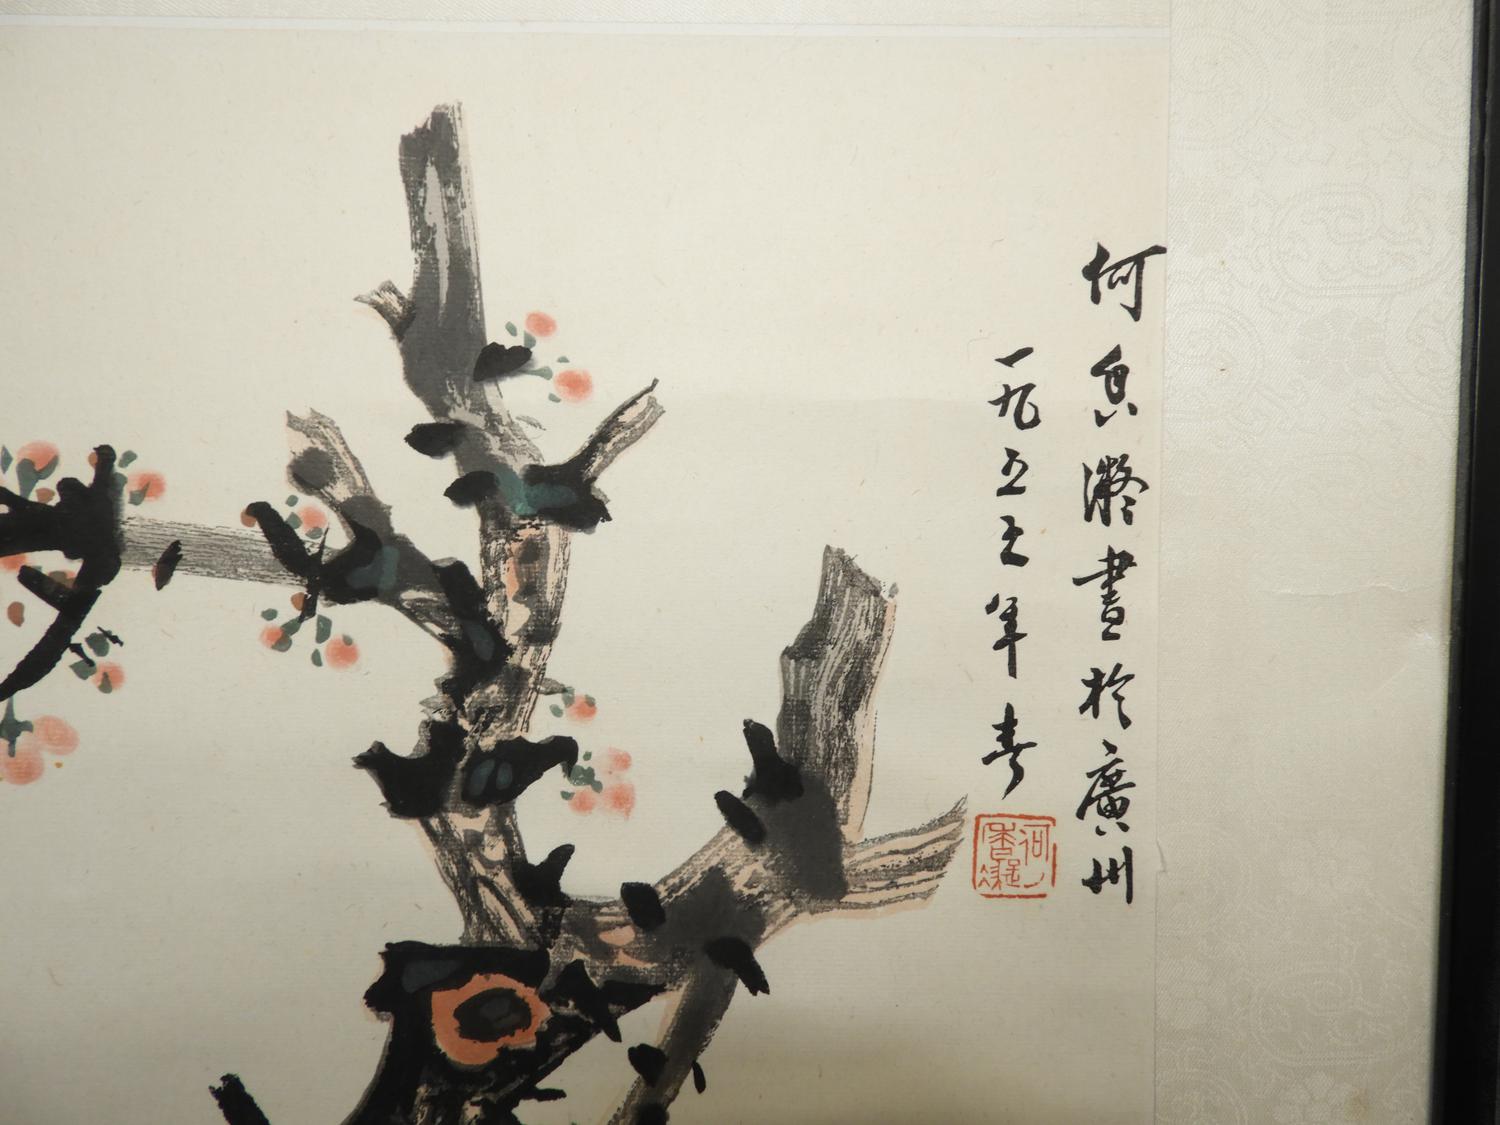 何香凝畫於廣州
一九五五年春
何香凝